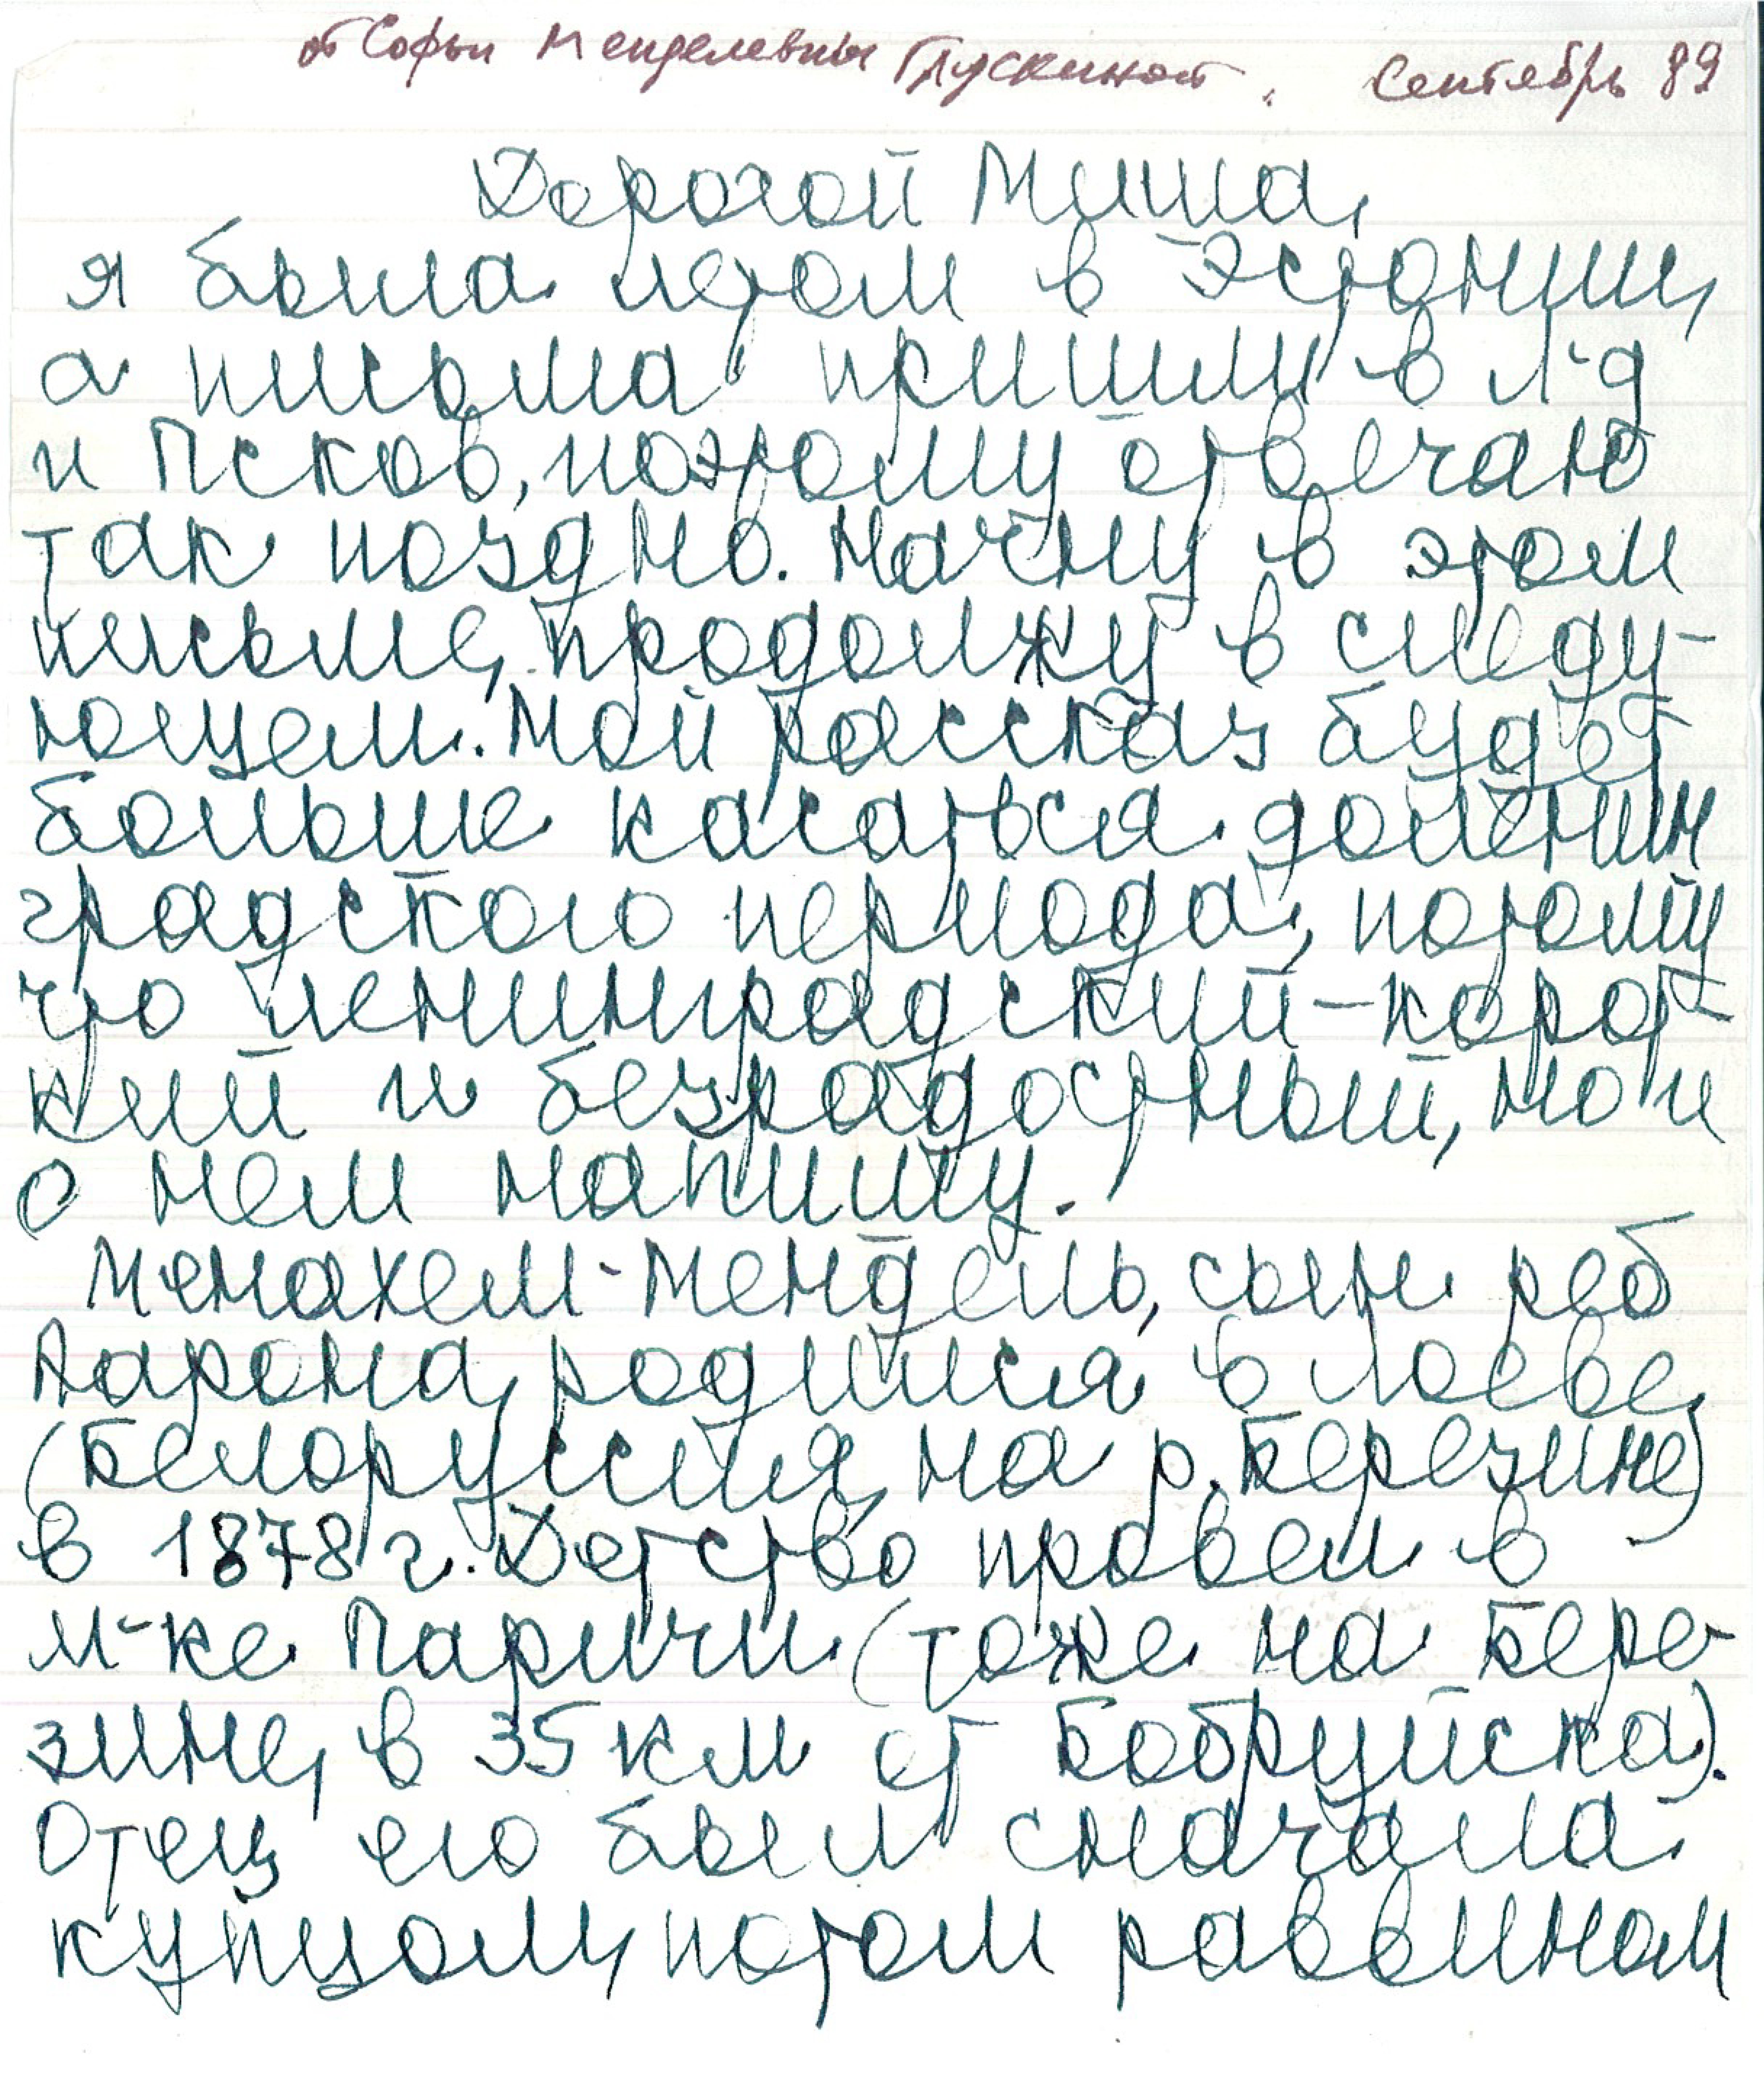 от Софьи Менделевны Глускиной. Сентябрь 89
Дорогой Миша,
я была летом в Эстонии,
а письма пришли в Л-д
и Псков, поэтому отвечаю
так поздно. Начну в этом
письме, продолжу в следу-
ющем. Мой рассказ будет
больше касаться доленин
градского периода, потому
что ленинградский – корот-
кий и безрадостный, но и
о нем напишу.
Менахем-Мендель, сын реб
Аарона, родился в Лоеве
(Белоруссия, на р. Березине)
в 1878 г. Детство провел в
м-ке Паричи (тоже на Бере-
зине, в 35 км от Бобруйска).
Отец его был сначала
купцом, потом раввином